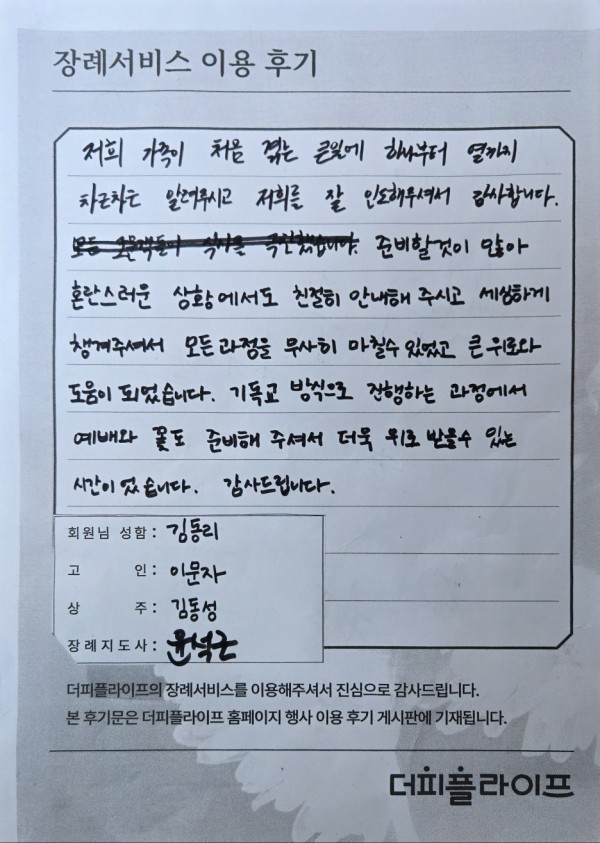 장례서비스 이용 후기
저희 가족이 처음 겪는 큰일에 하나부터 열까지
차근차근 알려주시고 저희를 잘 인도해주셔서 감사합니다.
모든 조문객들이 식사를 극찬했습니다. 준비할것이 많아
혼란스러운 상황에서도 친절히 안내해 주시고 세심하게
챙겨주셔서 모든과정을 무사히 마칠수 있었고 큰 위로와
도움이 되었습니다. 기독교 방식으로 진행하는 과정에서
예배와 꽃도 준비해 주셔서 더욱 위로 받을수 있는
시간이었습니다. 감사드립니다.
회원님 성함 : 김동리
고 인 : 이문자
상 주 : 김동성
장례지도사 : 윤석근
더피플라이프의 장례서비스를 이용해주셔서 진심으로 감사드립니다.
본 후기문은 더피플라이프 홈페이지 행사 이용 후기 게시판에 기재됩니다.
더피플라이프